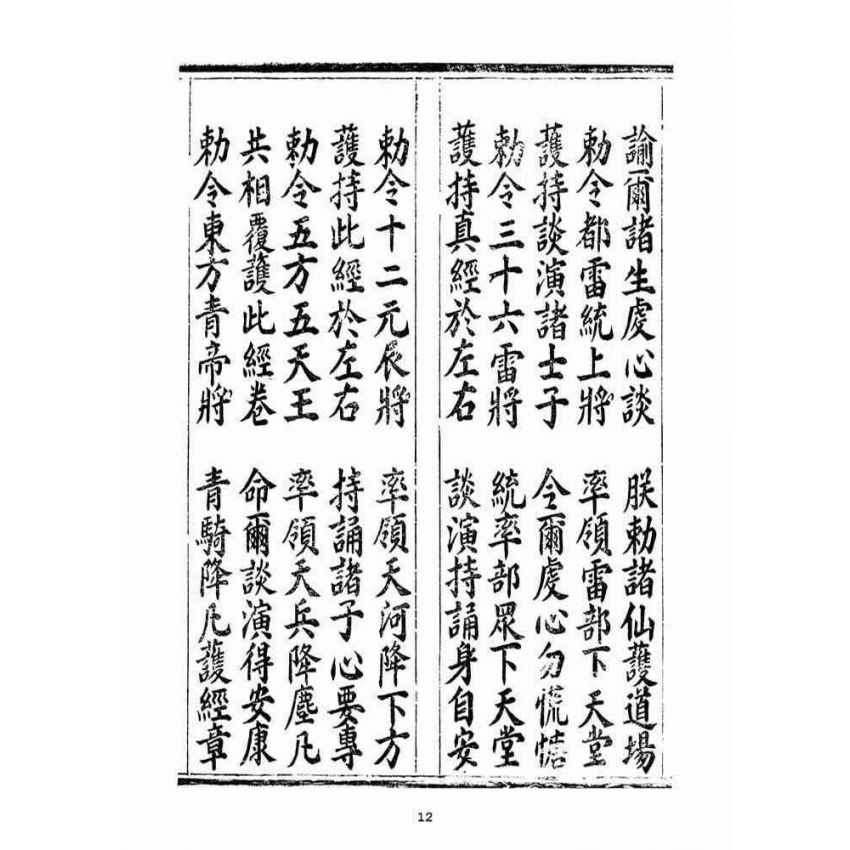 諭爾諸生虔心談 朕勅諸仙護道場
勅令都雷統上將 率領雷部下天堂
護持談演諸士子 令爾虔心勿慌
勅令三十六雷將 統率部眾下天堂
護持真經於左右 談演持誦身自安
勅令十二元辰將 率領天河降下方
護持此經於左右 持誦諸子心要專
勅令五方五天王 率領天兵降塵凡
共相覆護此經卷 命爾談演得安康
勅令東方青帝將 青騎降凡護經章
12